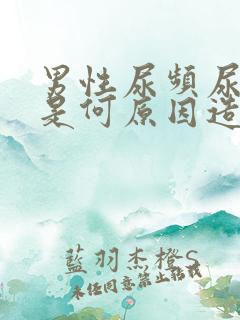 男性尿頻尿
是何原因造
藍羽杰橙S
未任同意禁止転載